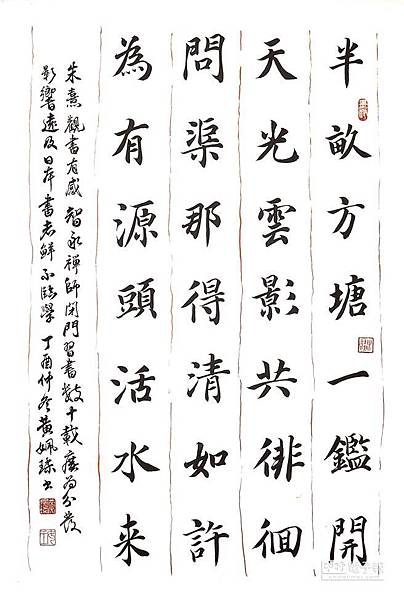 半畝方塘一鑑開
天光雲影共徘徊
問渠那得清如許
為有源頭活水来
朱熹觀書有感 智永禪師閉門習書數十載廣為分發
影響遠及日本書者鮮不臨學 丁酉仲冬黃姵書